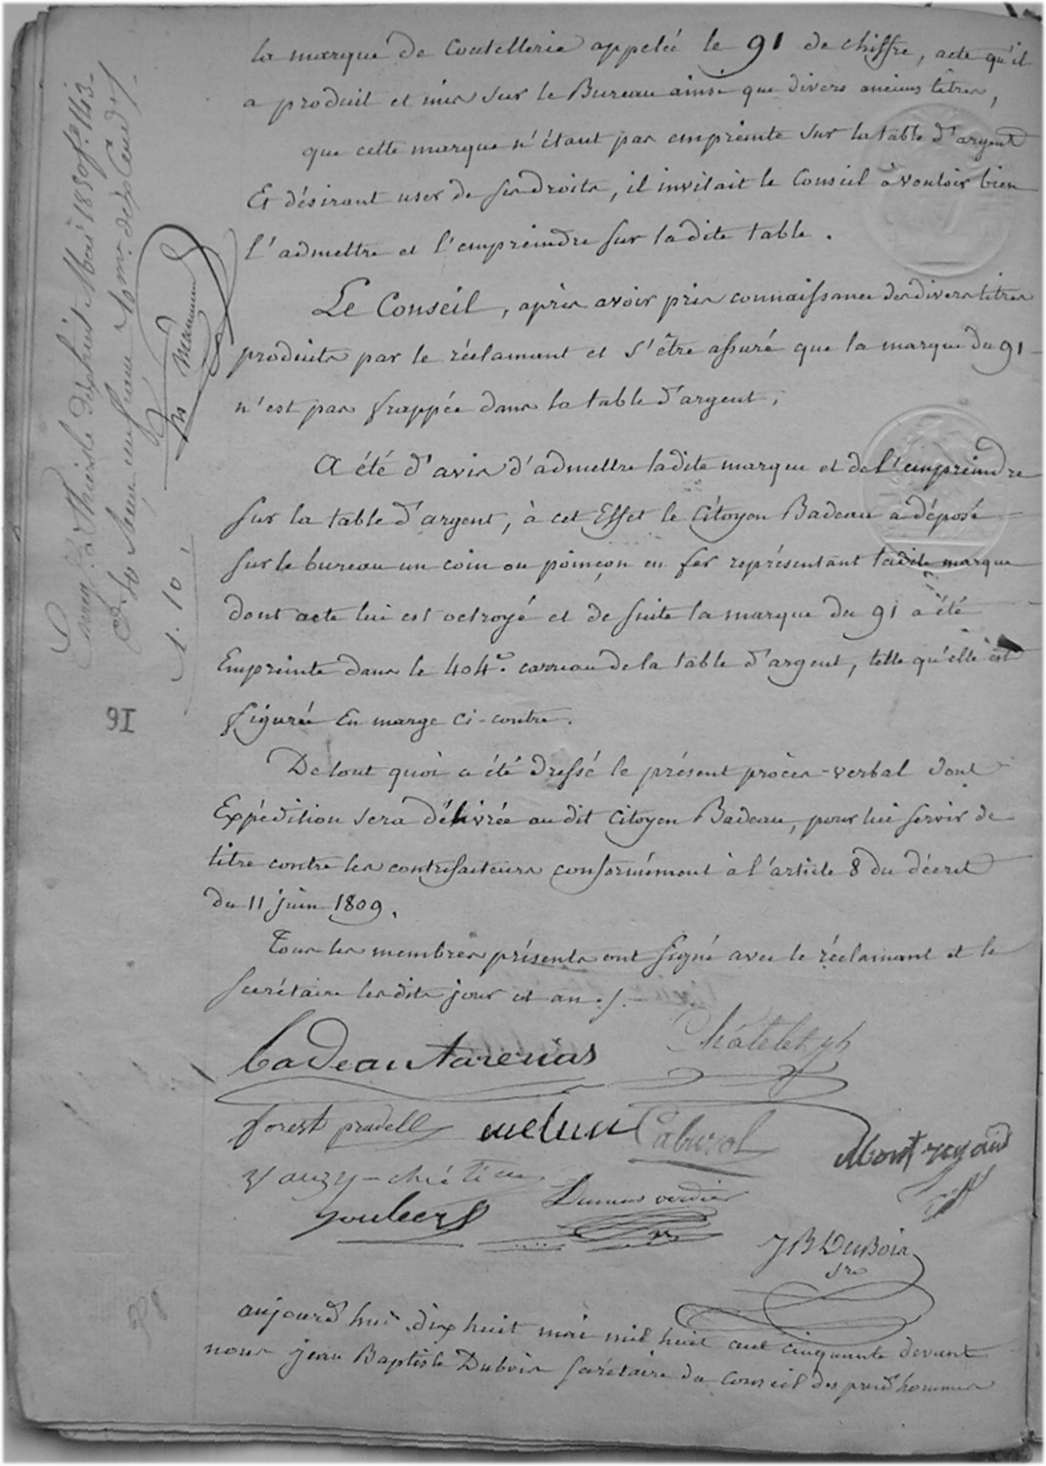 la marque de Coutellerie appelée le 91 de chiffre, acte qu'il
a produit et mis sur le Bureau ainsi que divers anciens titres,
que cette marque n'étant pas empreinte sur la table d'argent
Et désirant user de ses droits, il invitait le Conseil à vouloir bien
l'admettre et l'empreindre sur ladite table.
Le Conseil, après avoir pris connaissance des divers titres
produits par le réclamant et s'être assuré que la marque du 91
n'est pas frappée dans la table d'argent;
A été d'avis d'admettre ladite marque et de l'empreindre
sur la table d'argent, à cet Effet le Citoyen Badeau a déposé
sur le bureau un coin ou poinçon en fer représentant ladite marque
dont acte lui est octroyé et de suite la marque du 91 a été
Empreinte dans le 404e. carreau de la table d'argent, telle qu'elle est
figurée En marge ci-contre.
De tout quoi a été dressé le présent procès-verbal dont
Expédition sera délivrée au dit Citoyen Badeau, pour lui servir de
titre contre les contrefacteurs conformément à l'article 8 du décret
du 11 juin 1809.
Tous les membres présents ont signé avec le réclamant et le
secrétaire lesdits jour et an ./.
Badeau tarerias
Châtelet
forest pradell
melun
Cabirol
Montregaud
yauzy-chrétien
Dumas verdier
JB Dubois
sre
aujourd'hui dix huit mai mil huit cent cinquante devant
nous jean Baptiste Dubois secrétaire du conseil des prud'hommes
à Thiers le dix huit Mai 1850 f° 143
1. 10
91